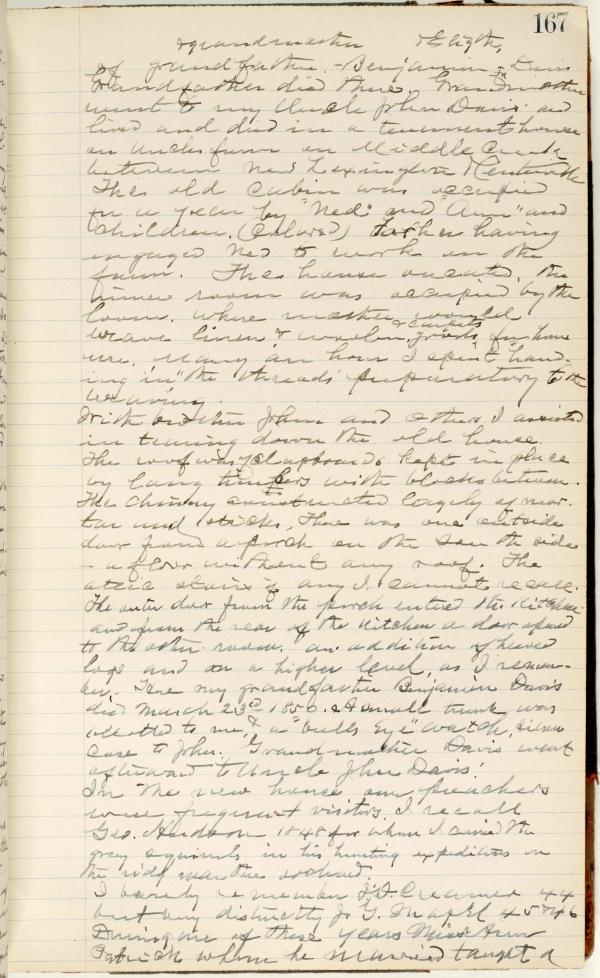 167
grandmother Elizth,
of grandfather - Benjamin Davis
Grandfather died there. Grandmother
went to my Uncle John Davis and
lived and died in a tenement house
on Uncles farm on Middle Creek
between New Lexington & Centerville
The old cabin was occupied
for a year by "Ned" and "Ann" and
Children, (Colored) father having
engaged Ned to work on the
farm. The house vacated, the
inner room was occupied by the
loom, where mother would
weave linen & woolen goods & carpets for home
use. Many an hour I spent "hand-
ing in" the threads preparatory to the
weaving.
With brother John and others I assisted
in tearing down the old house.
The roof was of clapboards kept in place
by long timbers with blocks between.
The chimney constructed largely of mor-
tar and sticks, There was one outside
door from a porch on the south side
- a floor without any roof. The
attic stairs if any I cannot recall.
The outer door from the porch entered the kitchen
and from the rear of the kitchen a door opened
to the other room, an addition of hewed
logs and on a higher level, as I remem-
ber. Here my grandfather Benjamin Davis
died March 23d 1850. A small trunk was
allotted to me, & a "bulls Eye" watch, silver
case to John. Grandmother Davis went
afterward to Uncle John Davis'.
In the new house our preachers
were frequent visitors. I recall
Geo. Hudson 1848 for whom I carried the
grey squirrels in his hunting expeditions on
the ridge near the orchard.
I barely remember Creamer 44
but very distinctly J. G. 45 & 46
During one of these years Miss Ann
Patrick whom he married taught a